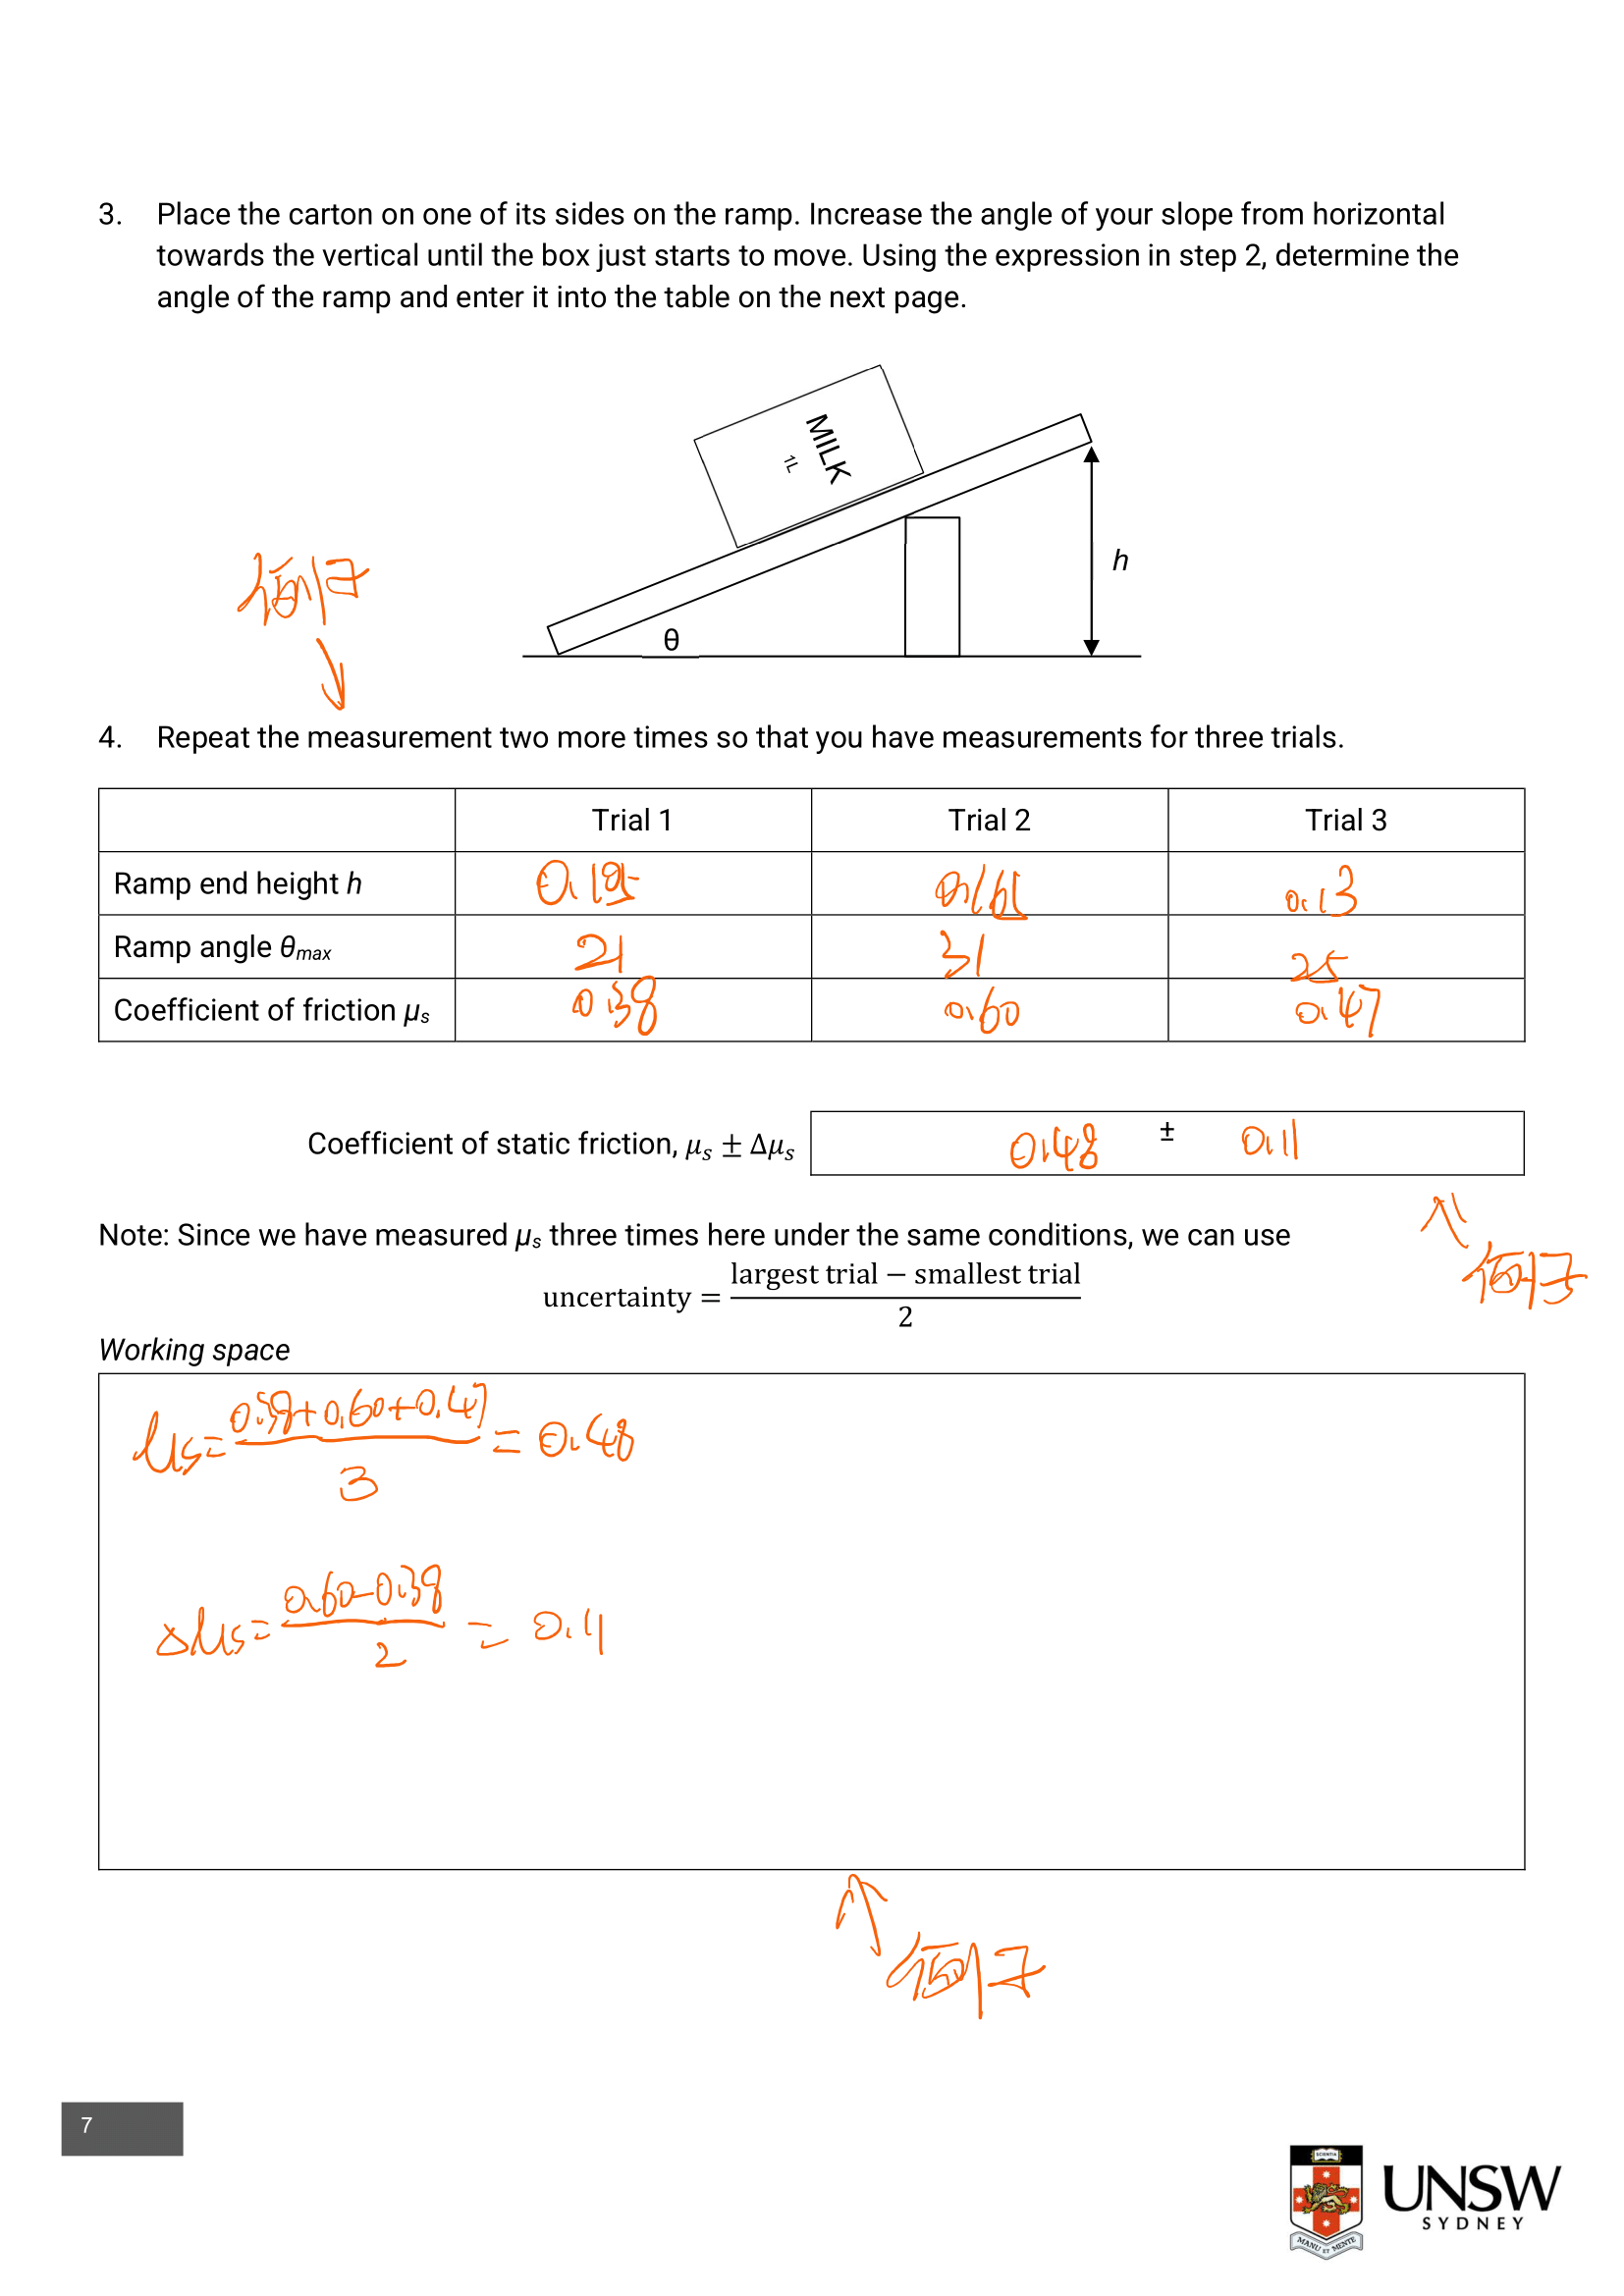 3. Place the carton on one of its sides on the ramp. Increase the angle of your slope from horizontal
towards the vertical until the box just starts to move. Using the expression in step 2, determine the
angle of the ramp and enter it into the table on the next page.
MILK
1L
h
θ
例子
4. Repeat the measurement two more times so that you have measurements for three trials.
Trial 1 Trial 2 Trial 3
Ramp end height h 0.195 0.161 0.13
Ramp angle θmax 21 31 25
Coefficient of friction μs 0.38 0.60 0.47
Coefficient of static friction, μs ± Δμs 0.48 ± 0.11
例子
Note: Since we have measured μs three times here under the same conditions, we can use
uncertainty = (largest trial − smallest trial) / 2
Working space
μs = (0.38+0.60+0.47) / 3 = 0.48
Δμs = (0.60-0.38) / 2 = 0.11
例子
7
SCIENTIA
MANU ET MENTE
UNSW
SYDNEY